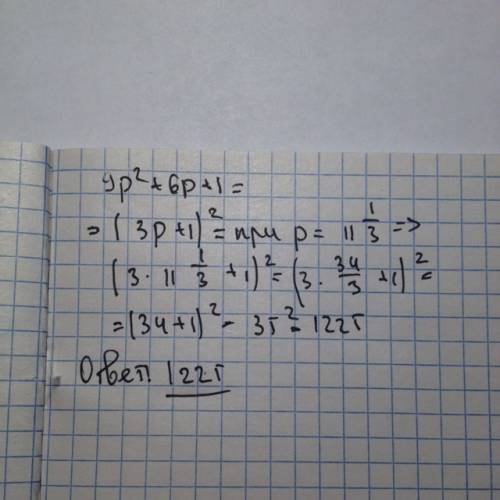 9p²+6p+1=
=(3p+1)²= при p= 11 1/3 =>
(3·11 1/3 +1)²=(3·34/3 +1)²=
=(34+1)²= 35²= 1225
Ответ: 1225